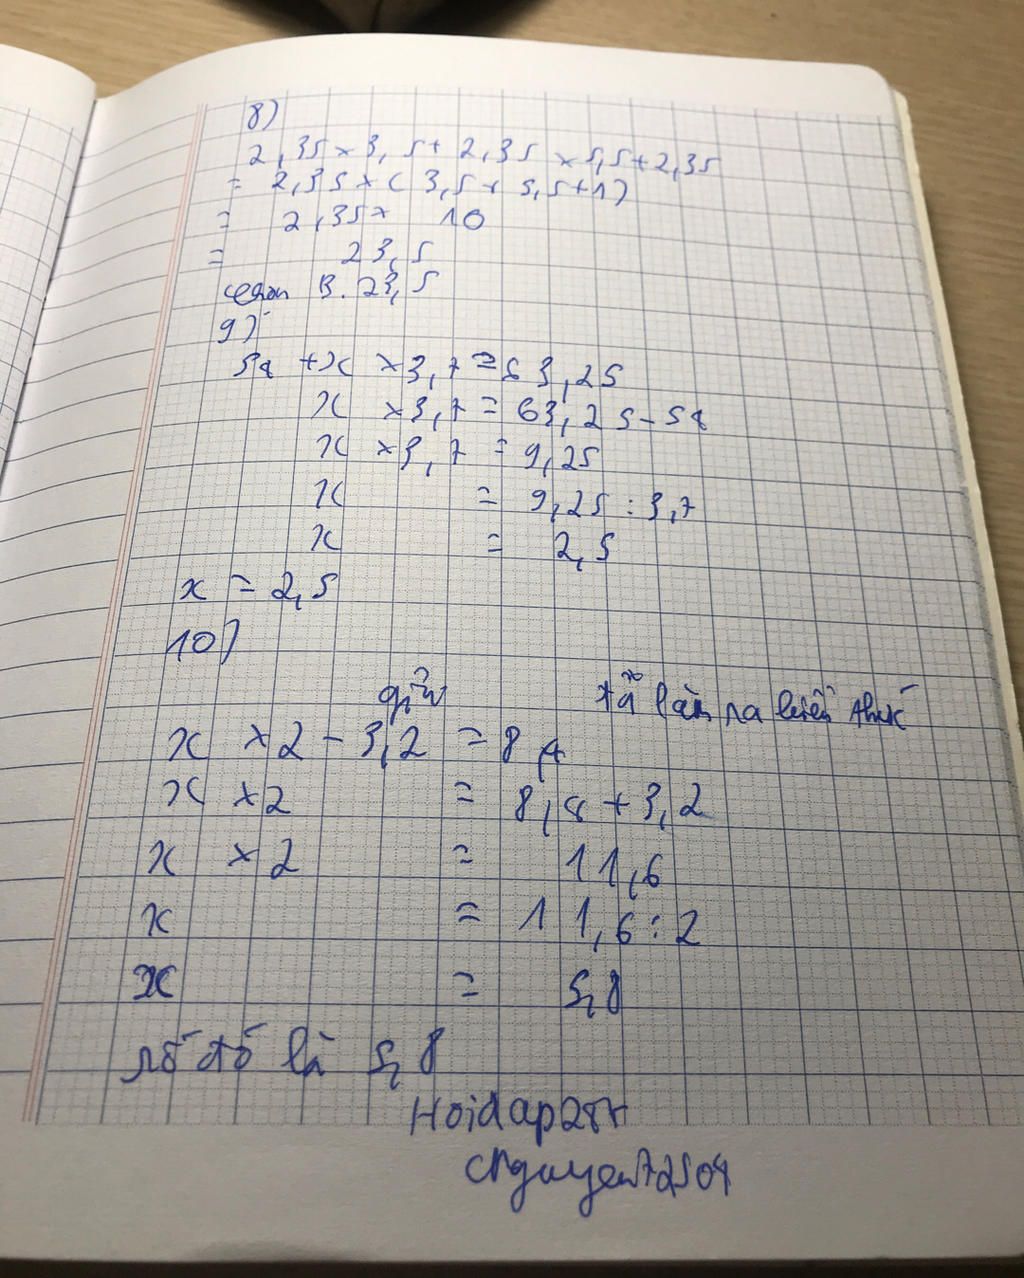 8)
2,35 × 3,5 + 2,35 × 5,5 + 2,35
= 2,35 × ( 3,5 + 5,5 + 1)
= 2,35 × 10
= 23,5
chọn B. 23,5
9)
54 + x × 3,7 = 63,25
x × 3,7 = 63,25 - 54
x × 3,7 = 9,25
x = 9,25 : 3,7
x = 2,5
x = 2,5
10)
ta làm ra biểu thức
x × 2 - 3,2 = 8,4
x × 2 = 8,4 + 3,2
x × 2 = 11,6
x = 11,6 : 2
x = 5,8
số đó là 5,8
Hoidap247